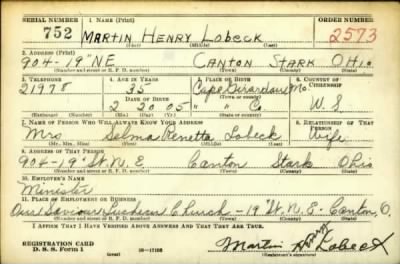 SERIAL NUMBER 1. NAME (Print) ORDER NUMBER
752 MARTIN HENRY LOBECK 2573
(First) (Middle) (Last)
2. ADDRESS (Print)
904-19" NE CANTON STARK OHIO
(Number and street or R. F. D. number) (Town) (County) (State)
3. TELEPHONE 4. AGE IN YEARS 5. PLACE OF BIRTH 6. COUNTRY OF CITIZENSHIP
21978 35 Cape Girardeau Mo.
DATE OF BIRTH (Town or county)
2 20 05 " " Co U.S
(Exchange) (Number) (Mo.) (Day) (Yr.) (State or country)
7. NAME OF PERSON WHO WILL ALWAYS KNOW YOUR ADDRESS 8. RELATIONSHIP OF THAT PERSON
Mrs Selma Renetta Lobeck Wife
(Mr., Mrs., Miss) (First) (Middle) (Last)
9. ADDRESS OF THAT PERSON
904-19" St. N.E Canton Stark Ohio
(Number and street or R. F. D. number) (Town) (County) (State)
10. EMPLOYER'S NAME
Minister
11. PLACE OF EMPLOYMENT OR BUSINESS
Our Saviour Lutheran Church - 19" St. N.E. Canton, O.
(Number and street or R. F. D. number) (Town) (County) (State)
I AFFIRM THAT I HAVE VERIFIED ABOVE ANSWERS AND THAT THEY ARE TRUE.
REGISTRATION CARD
D. S. S. Form 1 (over) 16-17105 Martin Henry Lobeck
(Registrant's signature)